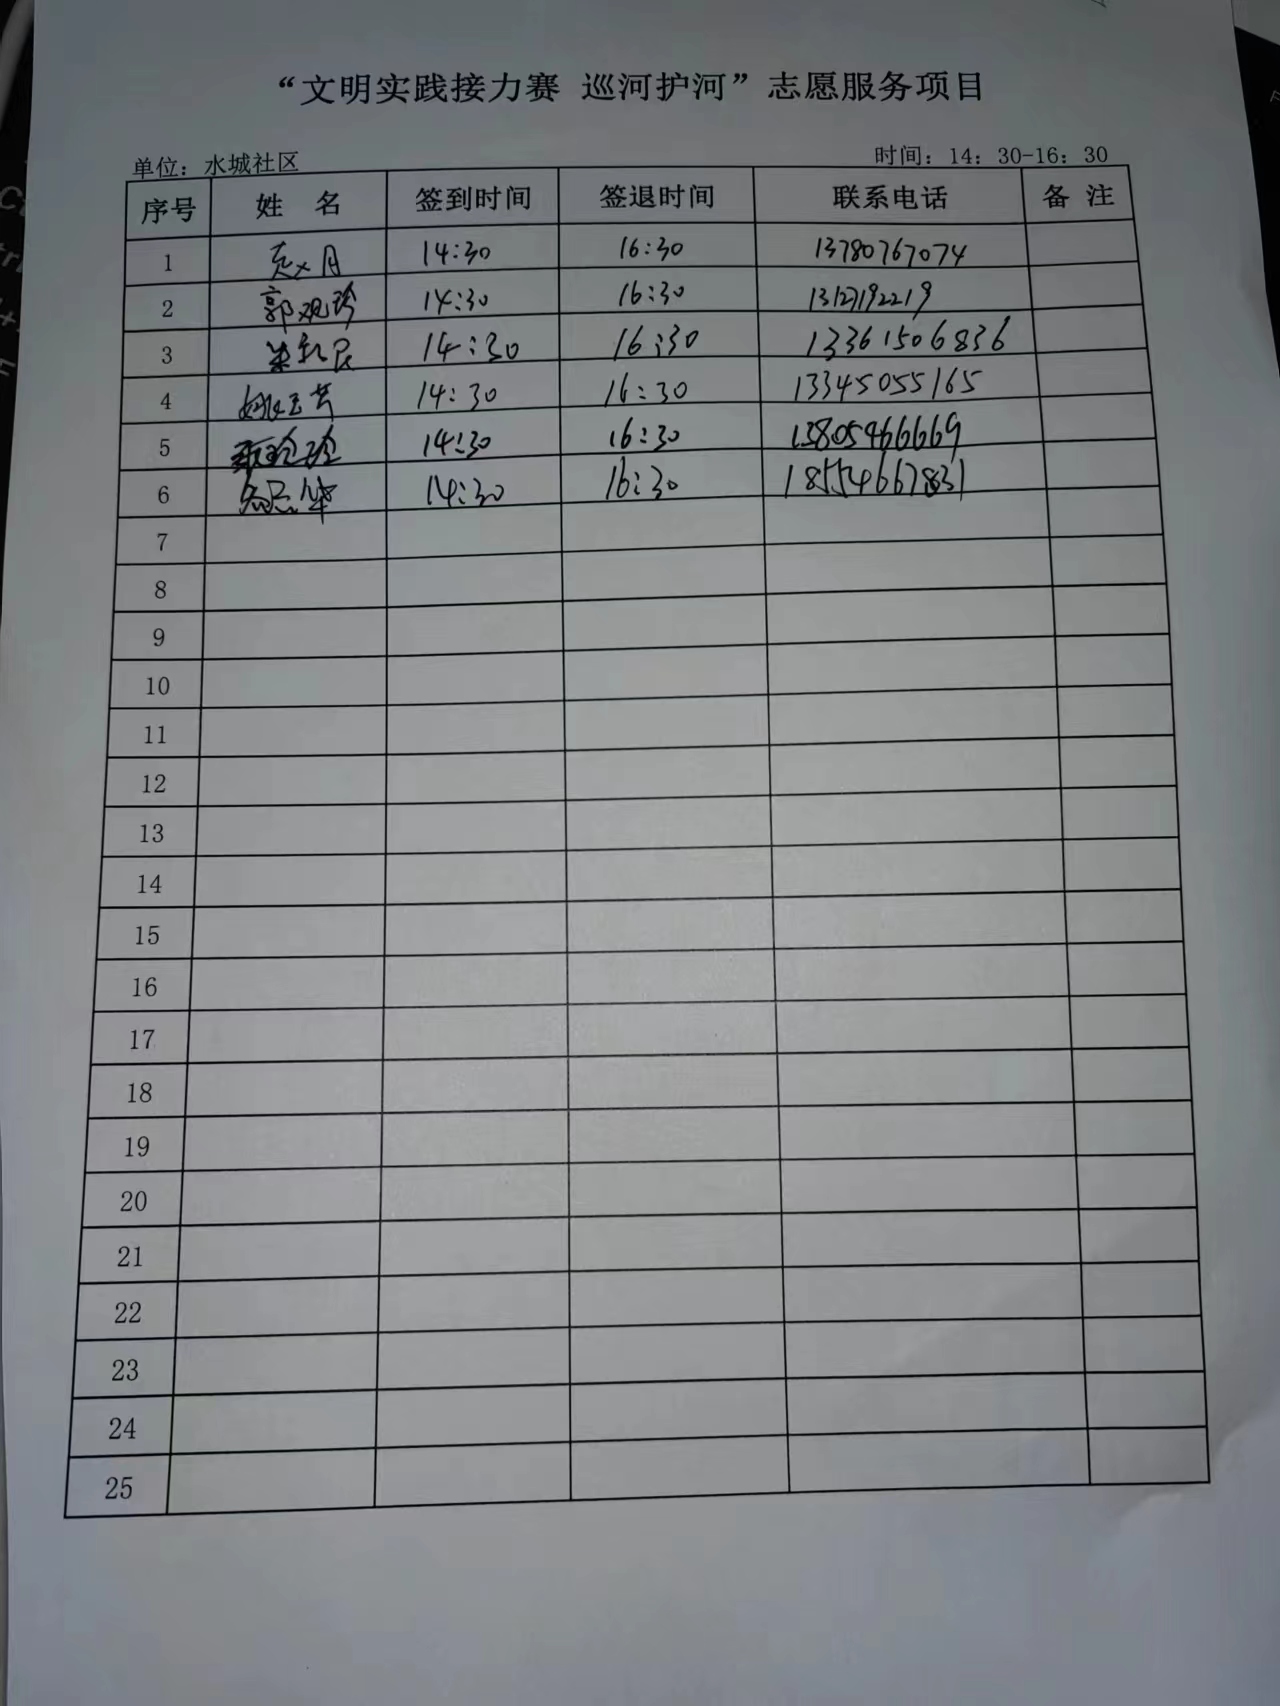 “文明实践接力赛 巡河护河”志愿服务项目
单位：水城社区 时间：14：30-16：30
序号 姓 名 签到时间 签退时间 联系电话 备 注
1 14:30 16:30 13780767074
2 郭观珍 14:30 16:30 13127192219
3 14:30 16:30 13361506836
4 姚玉芳 14:30 16:30 13345055165
5 14:30 16:30 13805466669
6 14:30 16:30 18554667831
7
8
9
10
11
12
13
14
15
16
17
18
19
20
21
22
23
24
25